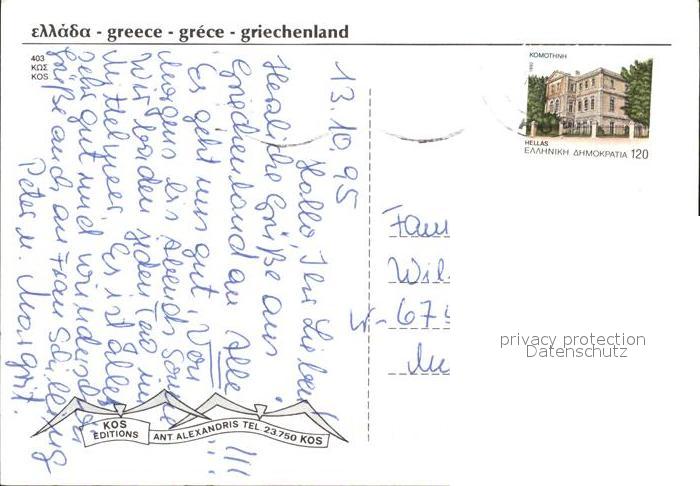 ελλάδα - greece - gréce - griechenland
403
ΚΩΣ
KOS
13.10.95
Hallo, Ihr Lieben!
Herzliche Grüße aus
Griechenland an Alle!!!
Es geht uns gut. Von
morgens bis abends Sonne
Wir baden jeden Tag im
Mittelmeer. Es ist alles
sehr gut und
Grüße auch an Frau Schilling
Peter u. Margrit.
KOS
EDITIONS
ANT. ALEXANDRIS TEL. 23.750 KOS
ΚΟΜΟΤΗΝΗ
HELLAS
ΕΛΛΗΝΙΚΗ ΔΗΜΟΚΡΑΤΙΑ 120
Fam
Wil
W-67
privacy protection
Datenschutz